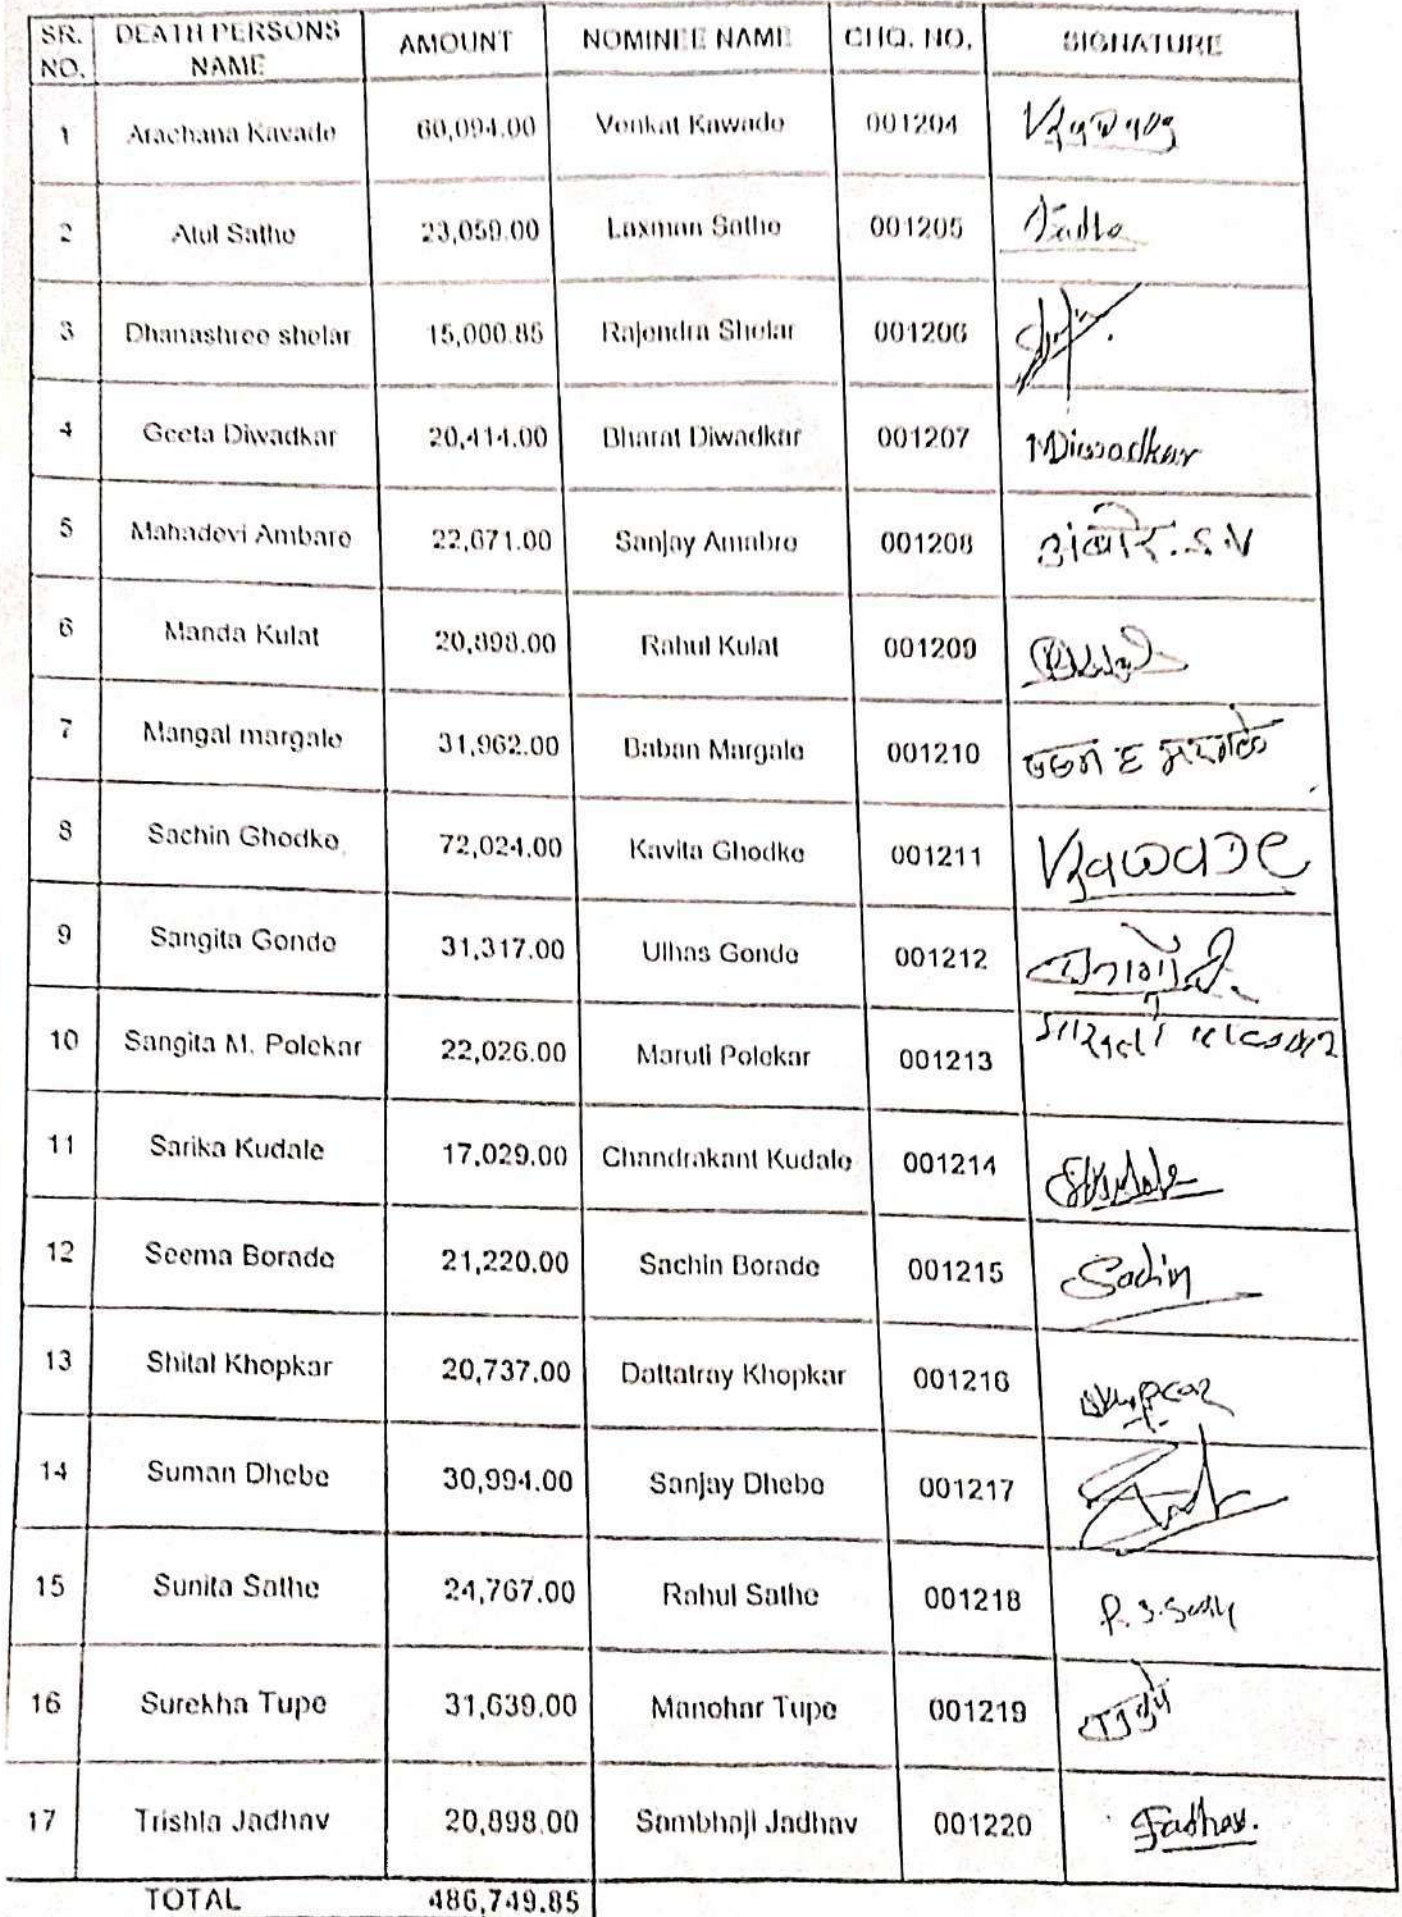 SR. NO. DEATH PERSONS NAME AMOUNT NOMINEE NAME CHQ. NO. SIGNATURE
1 Arachana Kavade 60,094.00 Venkat Kawade 001204
2 Atul Sathe 23,059.00 Laxman Sathe 001205
3 Dhanashree shelar 15,000.85 Rajendra Shelar 001206
4 Geeta Diwadkar 20,414.00 Bharat Diwadkar 001207 Diwadkar
5 Mahadevi Ambare 22,671.00 Sanjay Amabre 001208 अंबारे. S.V
6 Manda Kulat 20,898.00 Rahul Kulat 001209
7 Mangal margale 31,962.00 Baban Margale 001210
8 Sachin Ghodke 72,024.00 Kavita Ghodke 001211
9 Sangita Gonde 31,317.00 Ulhas Gonde 001212
10 Sangita M. Polekar 22,026.00 Maruti Polekar 001213
11 Sarika Kudale 17,029.00 Chandrakant Kudale 001214
12 Seema Borade 21,220.00 Sachin Borade 001215 Sachin
13 Shital Khopkar 20,737.00 Dattatray Khopkar 001216
14 Suman Dhebe 30,994.00 Sanjay Dhebe 001217
15 Sunita Sathe 24,767.00 Rahul Sathe 001218
16 Surekha Tupe 31,639.00 Manohar Tupe 001219
17 Trishla Jadhav 20,898.00 Sambhaji Jadhav 001220 Jadhav.
TOTAL 486,749.85